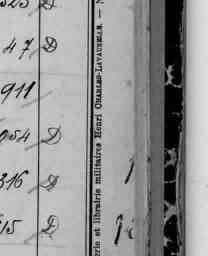 525 D
47 D
911
054 D
316 D
515 D
rie et librairie militaires Henri CHARLES-LAVAUZELLE. —